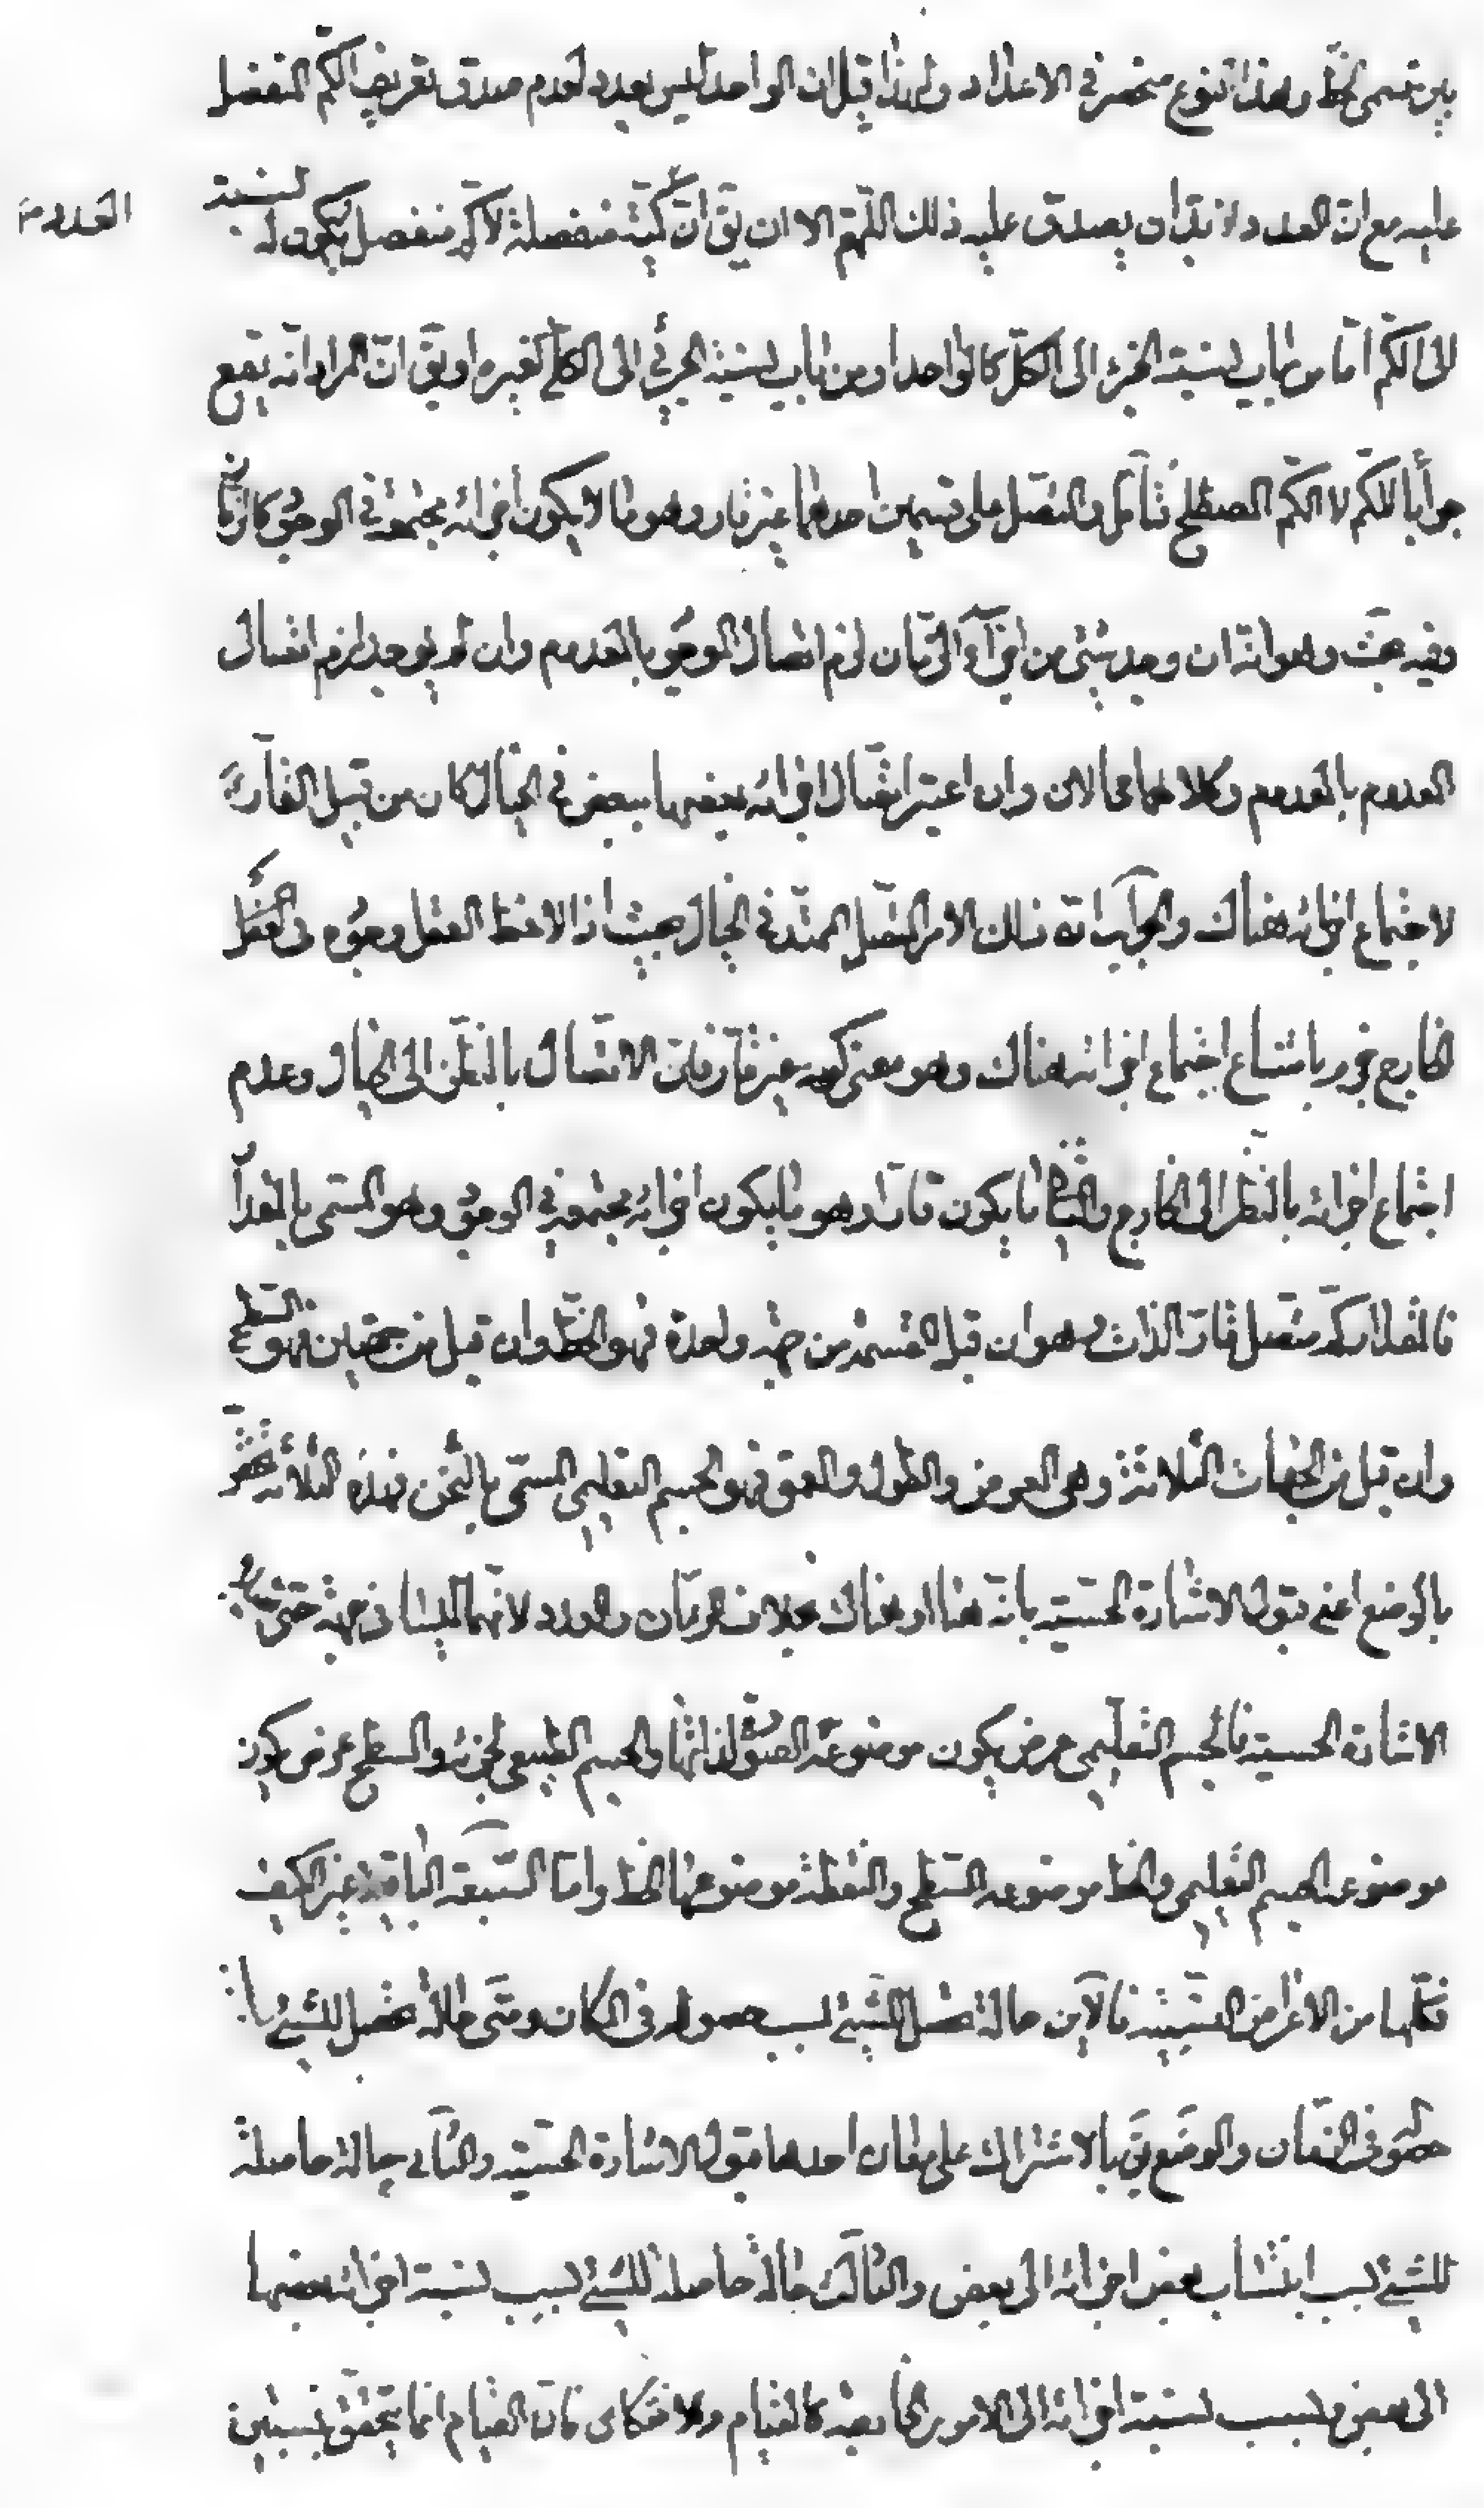 بين قسمي الخط وهذا النوع منحصر في الاعداد ولهذا قيل ان الواحد ليس بعدد لعدم صدق تعريف الكم المنفصل
عليه مع انّ العدد لا بدّ ان يصدق عليه ذلك اللّهمّ الا ان يقّ انّ كميّته منفصلة لا كم منفصل ليكون له نسبة
الى الكم امّا من باب نسبة الجزء الى الكلّ كالواحد او من باب نسبة الجزئي الى الكلّي كغيره او يقّ انّ المراد انه يقع
جوابا للكم لا الكم المصطلح تأمّل والمتصل على قسمين احدهما غير قار وهو ما لا يكون اجزائه مجتمعة في الوجود كالزمان
وفيه بحث وهو انّه ان وجد شيء من اجزاء الزمان لزم اتصال الموجود بالمعدوم وان لم يوجد لزم اتصال
المعدوم بالمعدوم وكلاهما محالان وان اعتبر اتصال اجزائه بعضها ببعض في الخيال كان من قبيل القارّ
لاجتماع اجزائه هناك والجواب انّه ذلك الامر المتصل الممتدّ في الخيال بحيث اذا لاحظ العقل وجوده في
الخارج جزم بامتناع اجتماع اجزائه هناك وهو معنى كونه غير قارّ فانّ الاتّصال بالنظر الى الخيال وعدم
اجتماع اجزائه بالنظر الى الخارج والثاني ما يكون قارّا وهو ما يكون اجزائه مجتمعة في الوجود وهو المسمّى بالمقدار
فالمقدار كمّ متصل قارّ الذات وهو ان قبل القسمة من جهة واحدة فهو الخطّ وان قبل من جهتين فهو السطح
وان قبل من الجهات الثلاثة وهي العرض والطول والعمق فهو الجسم التعليمي المسمّى بالثخن فهذه الثلاثة
بالوضع اعني قبول الاشارة الحسيّة بانّه هنا او هناك بخلاف الزمان والعدد لانّهما ليسا في جهة حتى
الاشارة الحسيّة فالجسم التعليمي عرض يكون موضوعه الصورة لذاتها والجسم الطبيعي لجزئه والسطح عرض يكون
موضوعه الجسم التعليمي والخط موضوعه السّطح والنقطة موضوعها الخط وامّا السّبعة الباقية غير الكيف
فكلّها من الاعراض النسبيّة فالاين حالة تحصل للشيء بسبب حصوله في المكان ومتى حالة تحصل للشيء
حصوله في الزمان والوضع يقّ بالاشتراك على معان احدها قبول الاشارة الحسيّة والثاني حالة حاصلة
للشيء بسبب انتساب بعض اجزائه الى بعض والثالث حالة حاصلة للشيء بسبب نسبة اجزائه بعضها
الى بعض وبسبب نسبة اجزائه الى الامور الخارجية كالقيام والانتكاس فان القيام انّما يتحقق بنسبتين